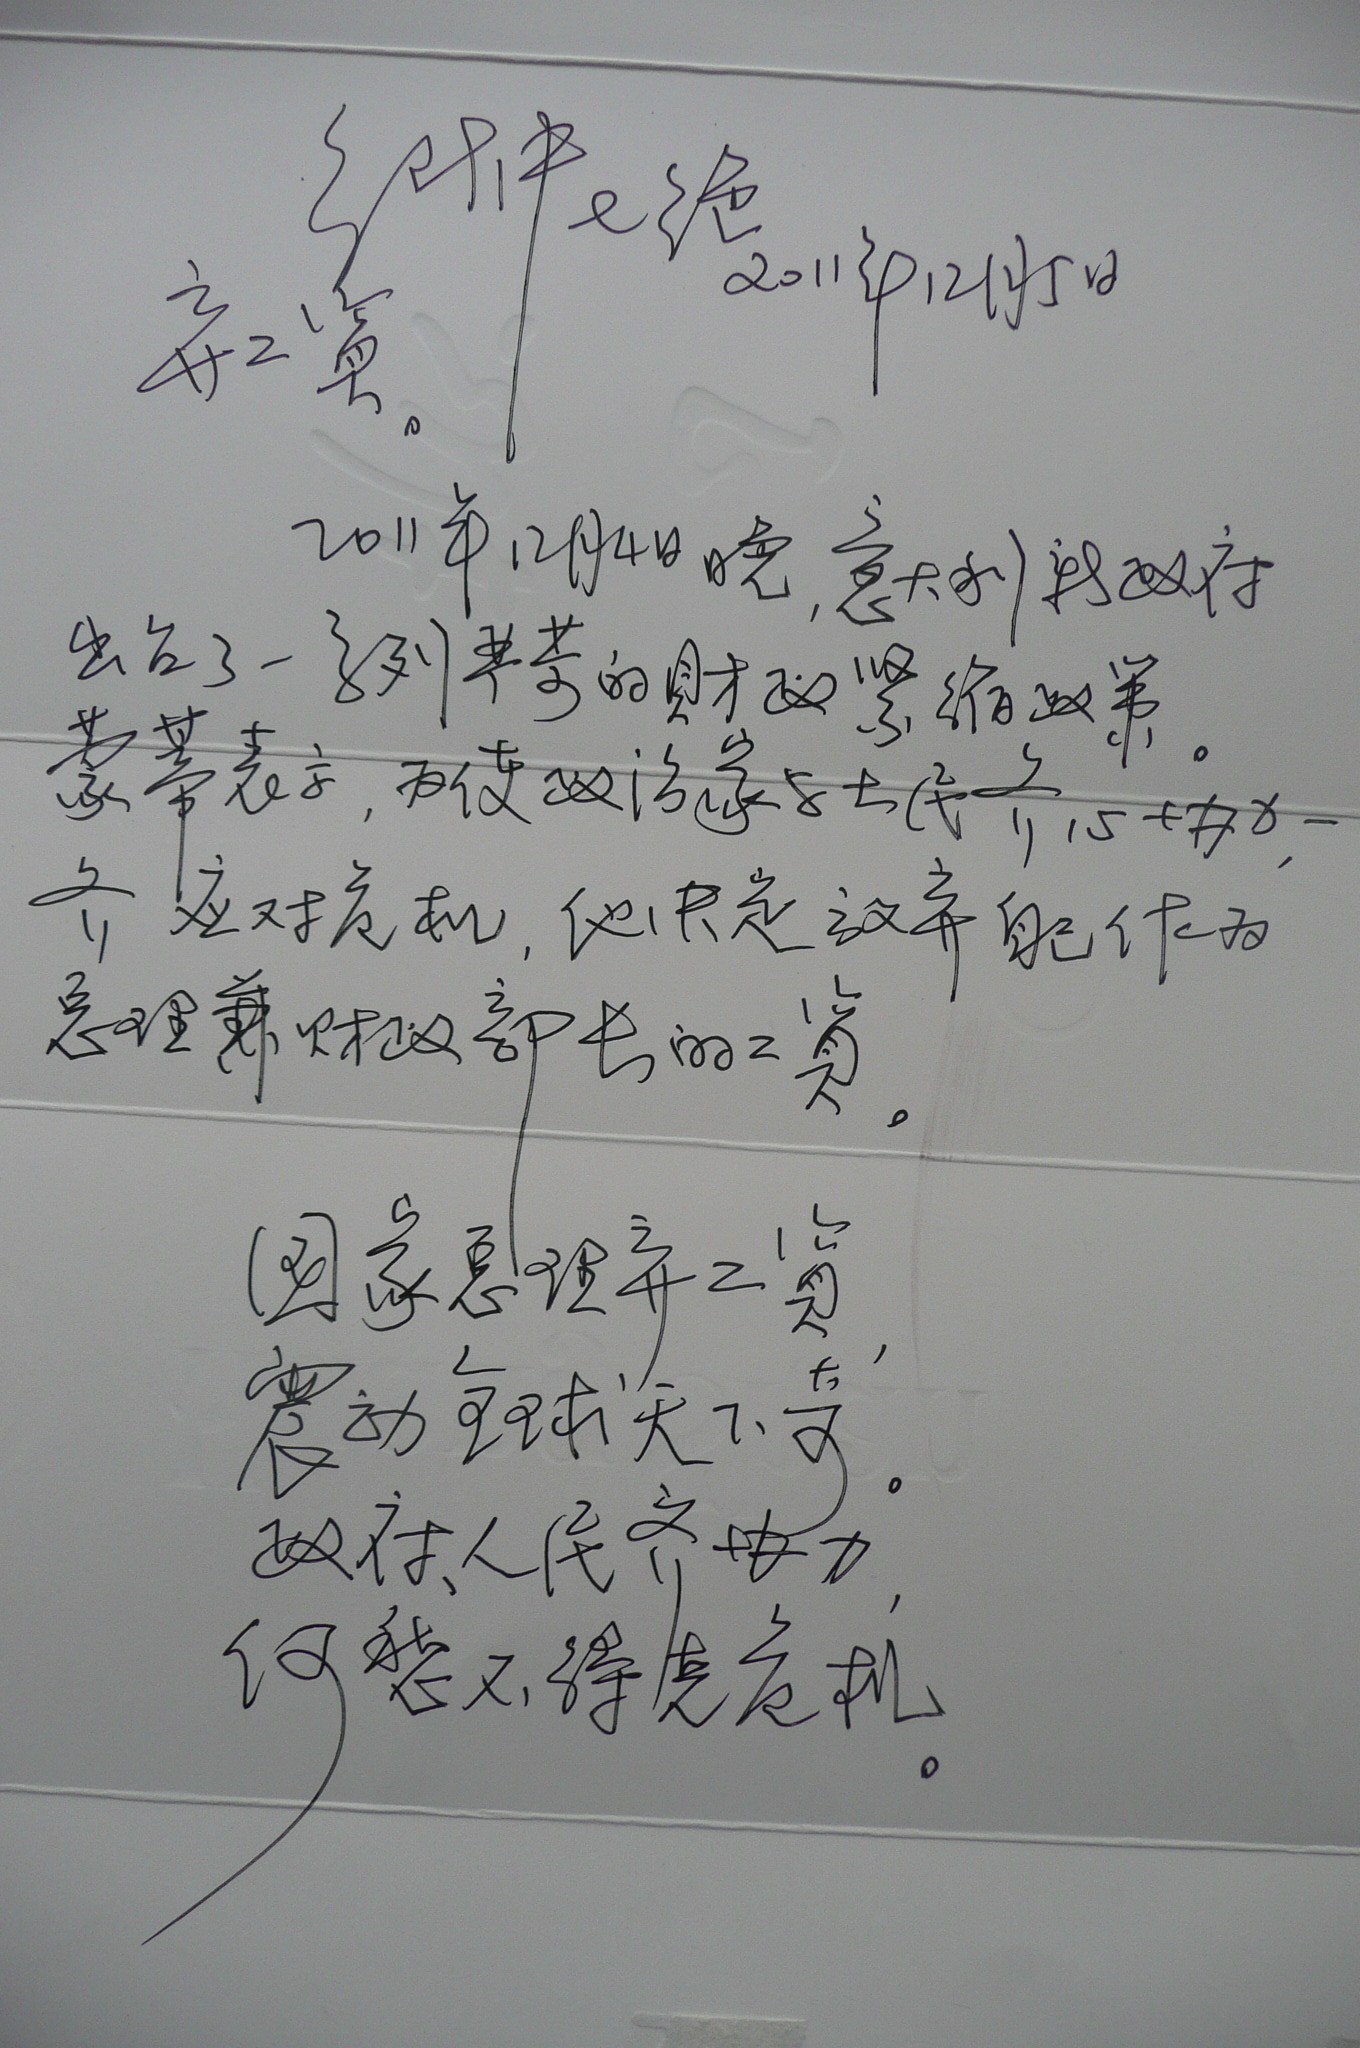 七绝
2011年12月5日
弃工资。
2011年12月4日晚,意大利新政府
出台了一系列严苛的财政紧缩政策。
蒙蒂表示,为使政治家与士民齐心协力,一
齐应对危机,他决定放弃自己作为
总理兼财政部长的工资。
国家总理弃工资,
震动全球天下奇。
政府、人民齐协力,
何愁不得克危机。